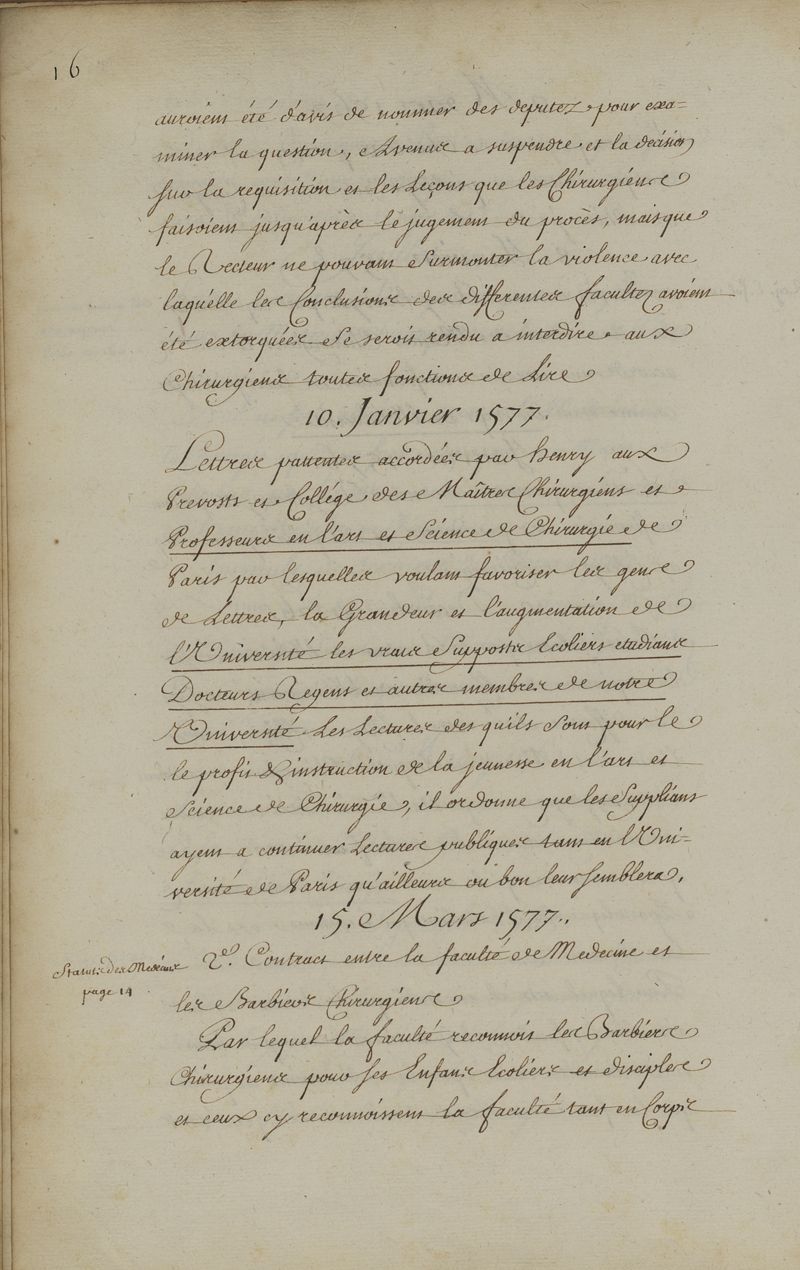 16
auroient été d'avis de nommer des deputez pour exa=
miner la question, et venur a suspendre et la decision
sur la requisition et les Leçons que les Chirurgiens
faisoient jusqu'aprés le jugement du procès, mais que
le Recteur ne pouvant Surmonter la violence avec
laquélle les Conclusions des differentes facultez avoient
été extorquées Se serois rendu a interdire aux
Chirurgiens toutes fonctions de Lire
10. Janvier 1577.
Lettres pattentes accordées par henry aux
Prevosts et Collége des Maîtres Chirurgiens et
Professeurs en l'art et Science de Chirurgie de
Paris par lesquelles voulant favoriser les gens
de Lettres, la Grandeur et l'augmentation de
l'Université les vrais Supposts Ecoliers etudians
Docteurs Regens et autres membres de notre
Université Les Lectures des quils Sont pour le
le profit & instruction de la jeunesse en l'art et
Science de Chirurgie, il ordonne que les Supplians
ayent a continuer Lectures publiques tant en l'Uni=
versité de Paris qu'ailleurs ou bon leur semblera,
15. Mars 1577.
Statuts des Medecins
page 14
2e. Contract entre la faculté de Medecine et
les Barbiers Chirurgiens
Par lequel la faculté reconnois les Barbiers
Chirurgiens pour ses Enfans Ecoliers et disciples
et ceux cy reconnoissent la faculté tant en Corps